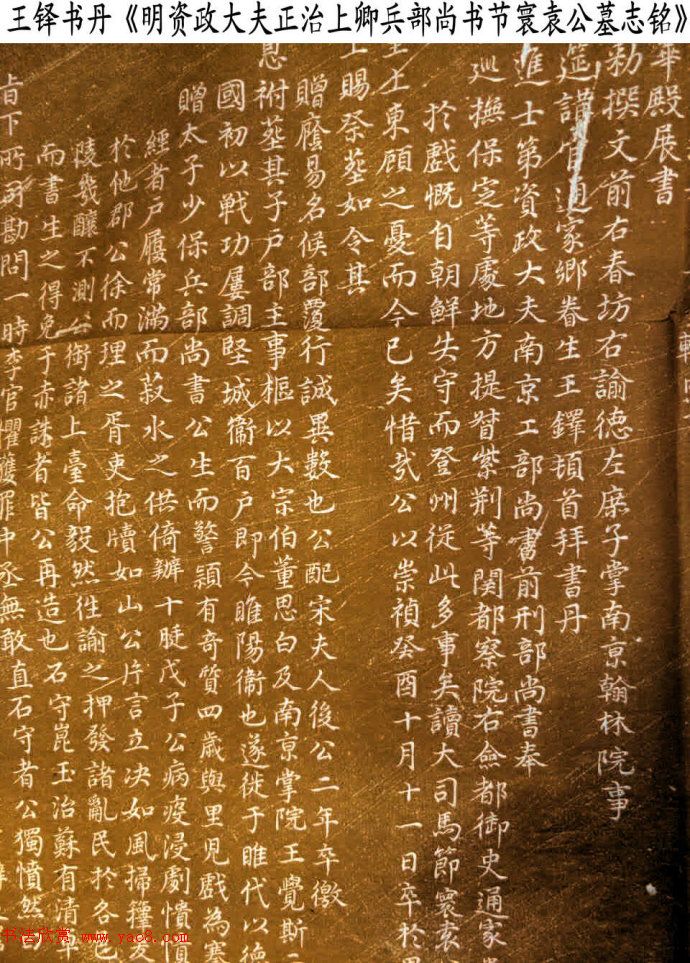 王铎书丹《明资政大夫正治上卿兵部尚书节寰袁公墓志铭》
華殿展書
勅撰文前右春坊右諭德左庶子掌南京翰林院事
筵講官通家鄉眷生王鐸頓首拜書丹
進士第資政大夫南京工部尚書前刑部尚書奉
巡撫保定等處地方提督紫荆等関都察院右僉都御史通家
於戲慨自朝鮮失守而登州從此多事矣讀大司馬節寰袁
上東顧之憂而今已矣惜哉公以崇禎癸酉十月十一日卒於
上賜祭葬如令其
贈廕易名候部覆行誠異數也公配宋夫人後公二年卒徼
息祔葬其子戶部主事樞以大宗伯董思白及南京掌院王覺斯
國初以戰功屢調堅城衞百戶即今睢陽衞也遂徙于睢代以德
贈太子少保兵部尚書公生而警頴有奇質四歲與里兒戲為
經者戶屨常滿而菽水之供倚辦十脡戊子公病疫浸劇憒
於他郡公徐而理之胥吏抱牘如山公片言立决如風掃籜
陵幾釀不測公銜諸上臺命毅然徃諭之押發諸亂民於各
而書生之得免于赤誅者皆公再造也石守崑玉治蘇有清
旨下所司勘問一時李官懼獲罪中丞無敢直石守者公獨憤然
书法欣赏 www.yac8.com